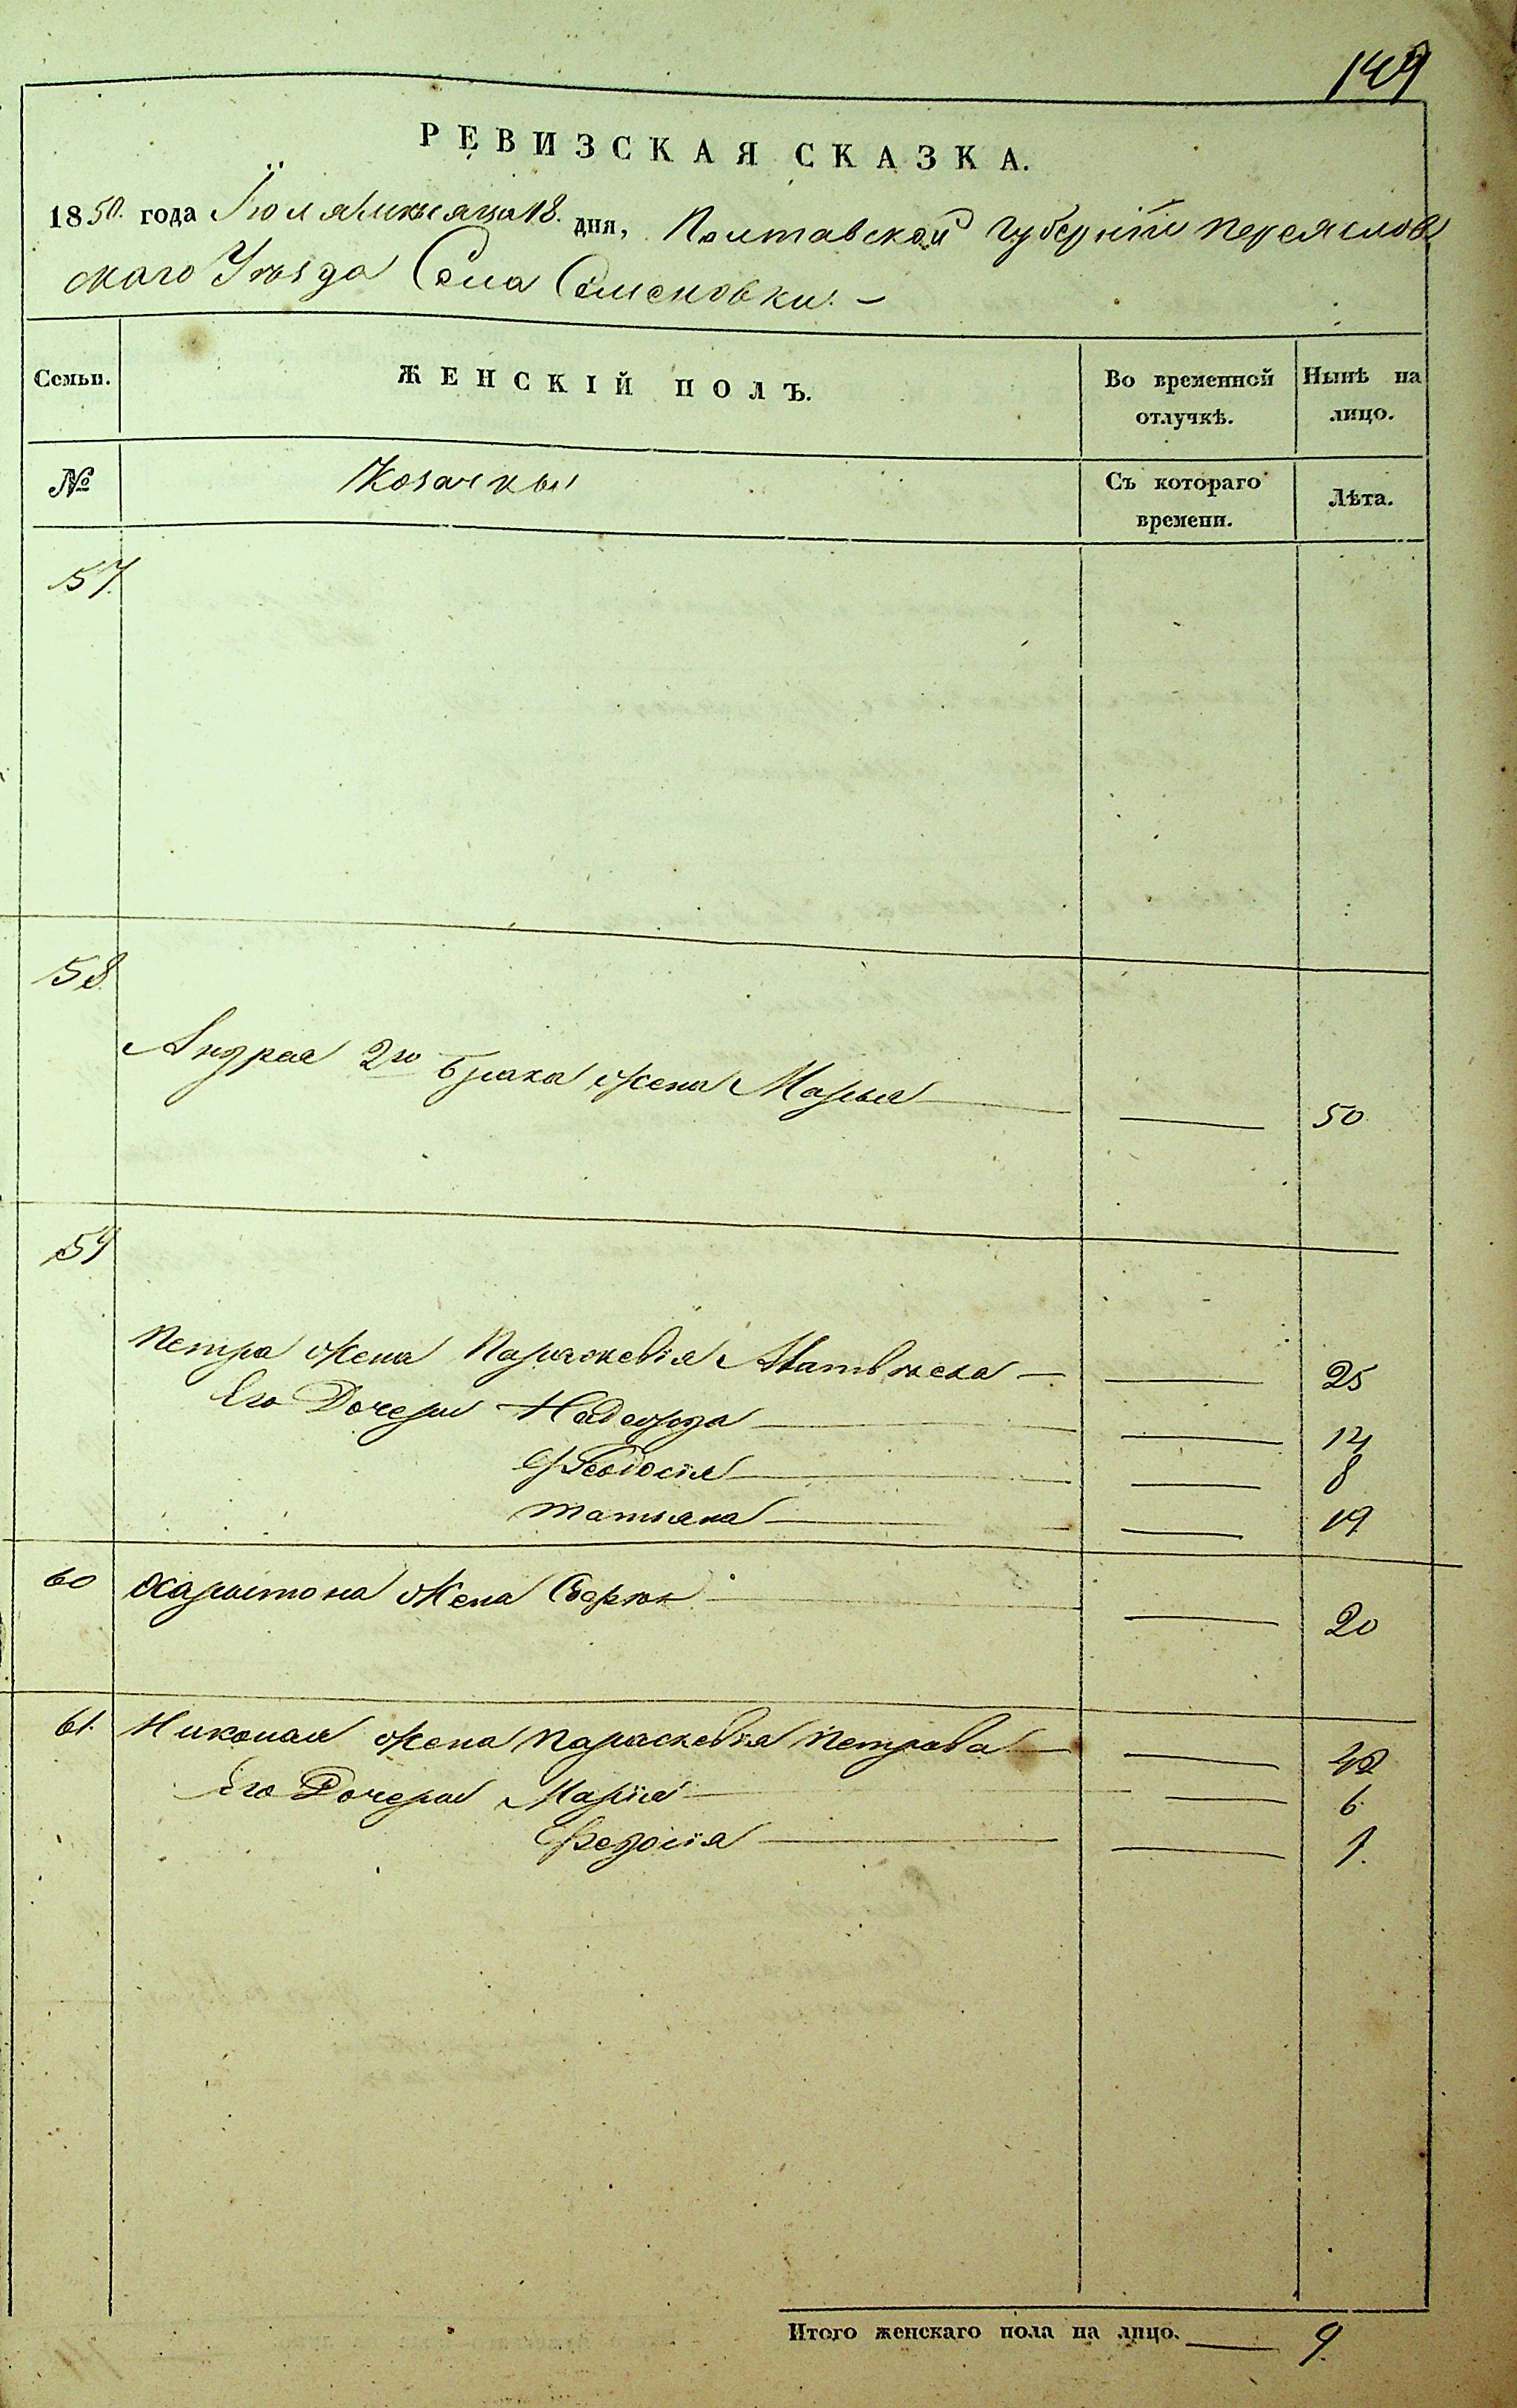 149
РЕВИЗСКАЯ СКАЗКА.
1850. года Іюля мѣсяца 18. дня, Полтавской Губерніи Переяслов
скаго Уѣзда Села Семеновки. —
Семьи. ЖЕНСКІЙ ПОЛЪ. Во временной отлучкѣ. Нынѣ на лицо.
№ Козачки Съ котораго времени. Лѣта.
57.
58.
Андрея 2го брака жена Марья — — 50
59
Петра жена Параскевія Матвѣева — — 25
Его Дочери Надежда — — 14
Феодосія — — 8
Татьяна — — 19
60 Харитона жена — — 20
61. Николая жена Параскевія Петрова — —
Его Дочери Марія — — 6
Федосія — — 1.
Итого женскаго пола на лицо. — 9.